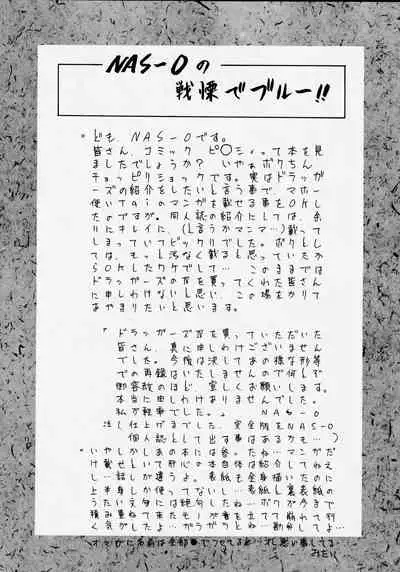 NAS-Oの
戦慄でブルー!!
ども、NAS-Oです。
皆さん、コミック ピ○シィって本を見
ましたでしょうか? いやぁボクちん
チョッピリショックです。実はドラッガ
ーズの紹介をしたいと言う事で、マホー
使いでaiのマンガを載せる事をOKし
たのですが。同人誌の紹介にしては、余
りにキレイに、(と言うかマンマ…)載って
しまっていてビックリでした。ボクとし
ては、もっと汚なく載ると思っていたか
らOKしたワケでして… このままでは
ドラッガーズの本を買ってくれた皆さん
に申しわけないと思い、この場をかりて
あやまりたいと思います。
「ドラッガーズ本を買っていただいた
皆さん、真に申しわけございません
でした。今後は決してあの様な形等
での再録はいたしませんので何とぞ
御容赦のほど、宜しくお願いします。
本当に申しわけありませんでした。
私が軽率でした。」 NAS-O
注)仕上げまでした、完全版をNAS-O
個人誌として出す事はあるかも…)
いやしかしあの本には参ったね…マンガだ
け載せといて肝心の本自体は紹介してねえ
し…話しが違うよ。表紙も全身描いたのに
上半身しか使ってないし…表紙と裏表紙の
うたい文句には絶句したね…ボクが今まで
積み重ねて来たモノが音を立てて崩れて行
く気がしたよ…ガラガラとね…勘弁してよ